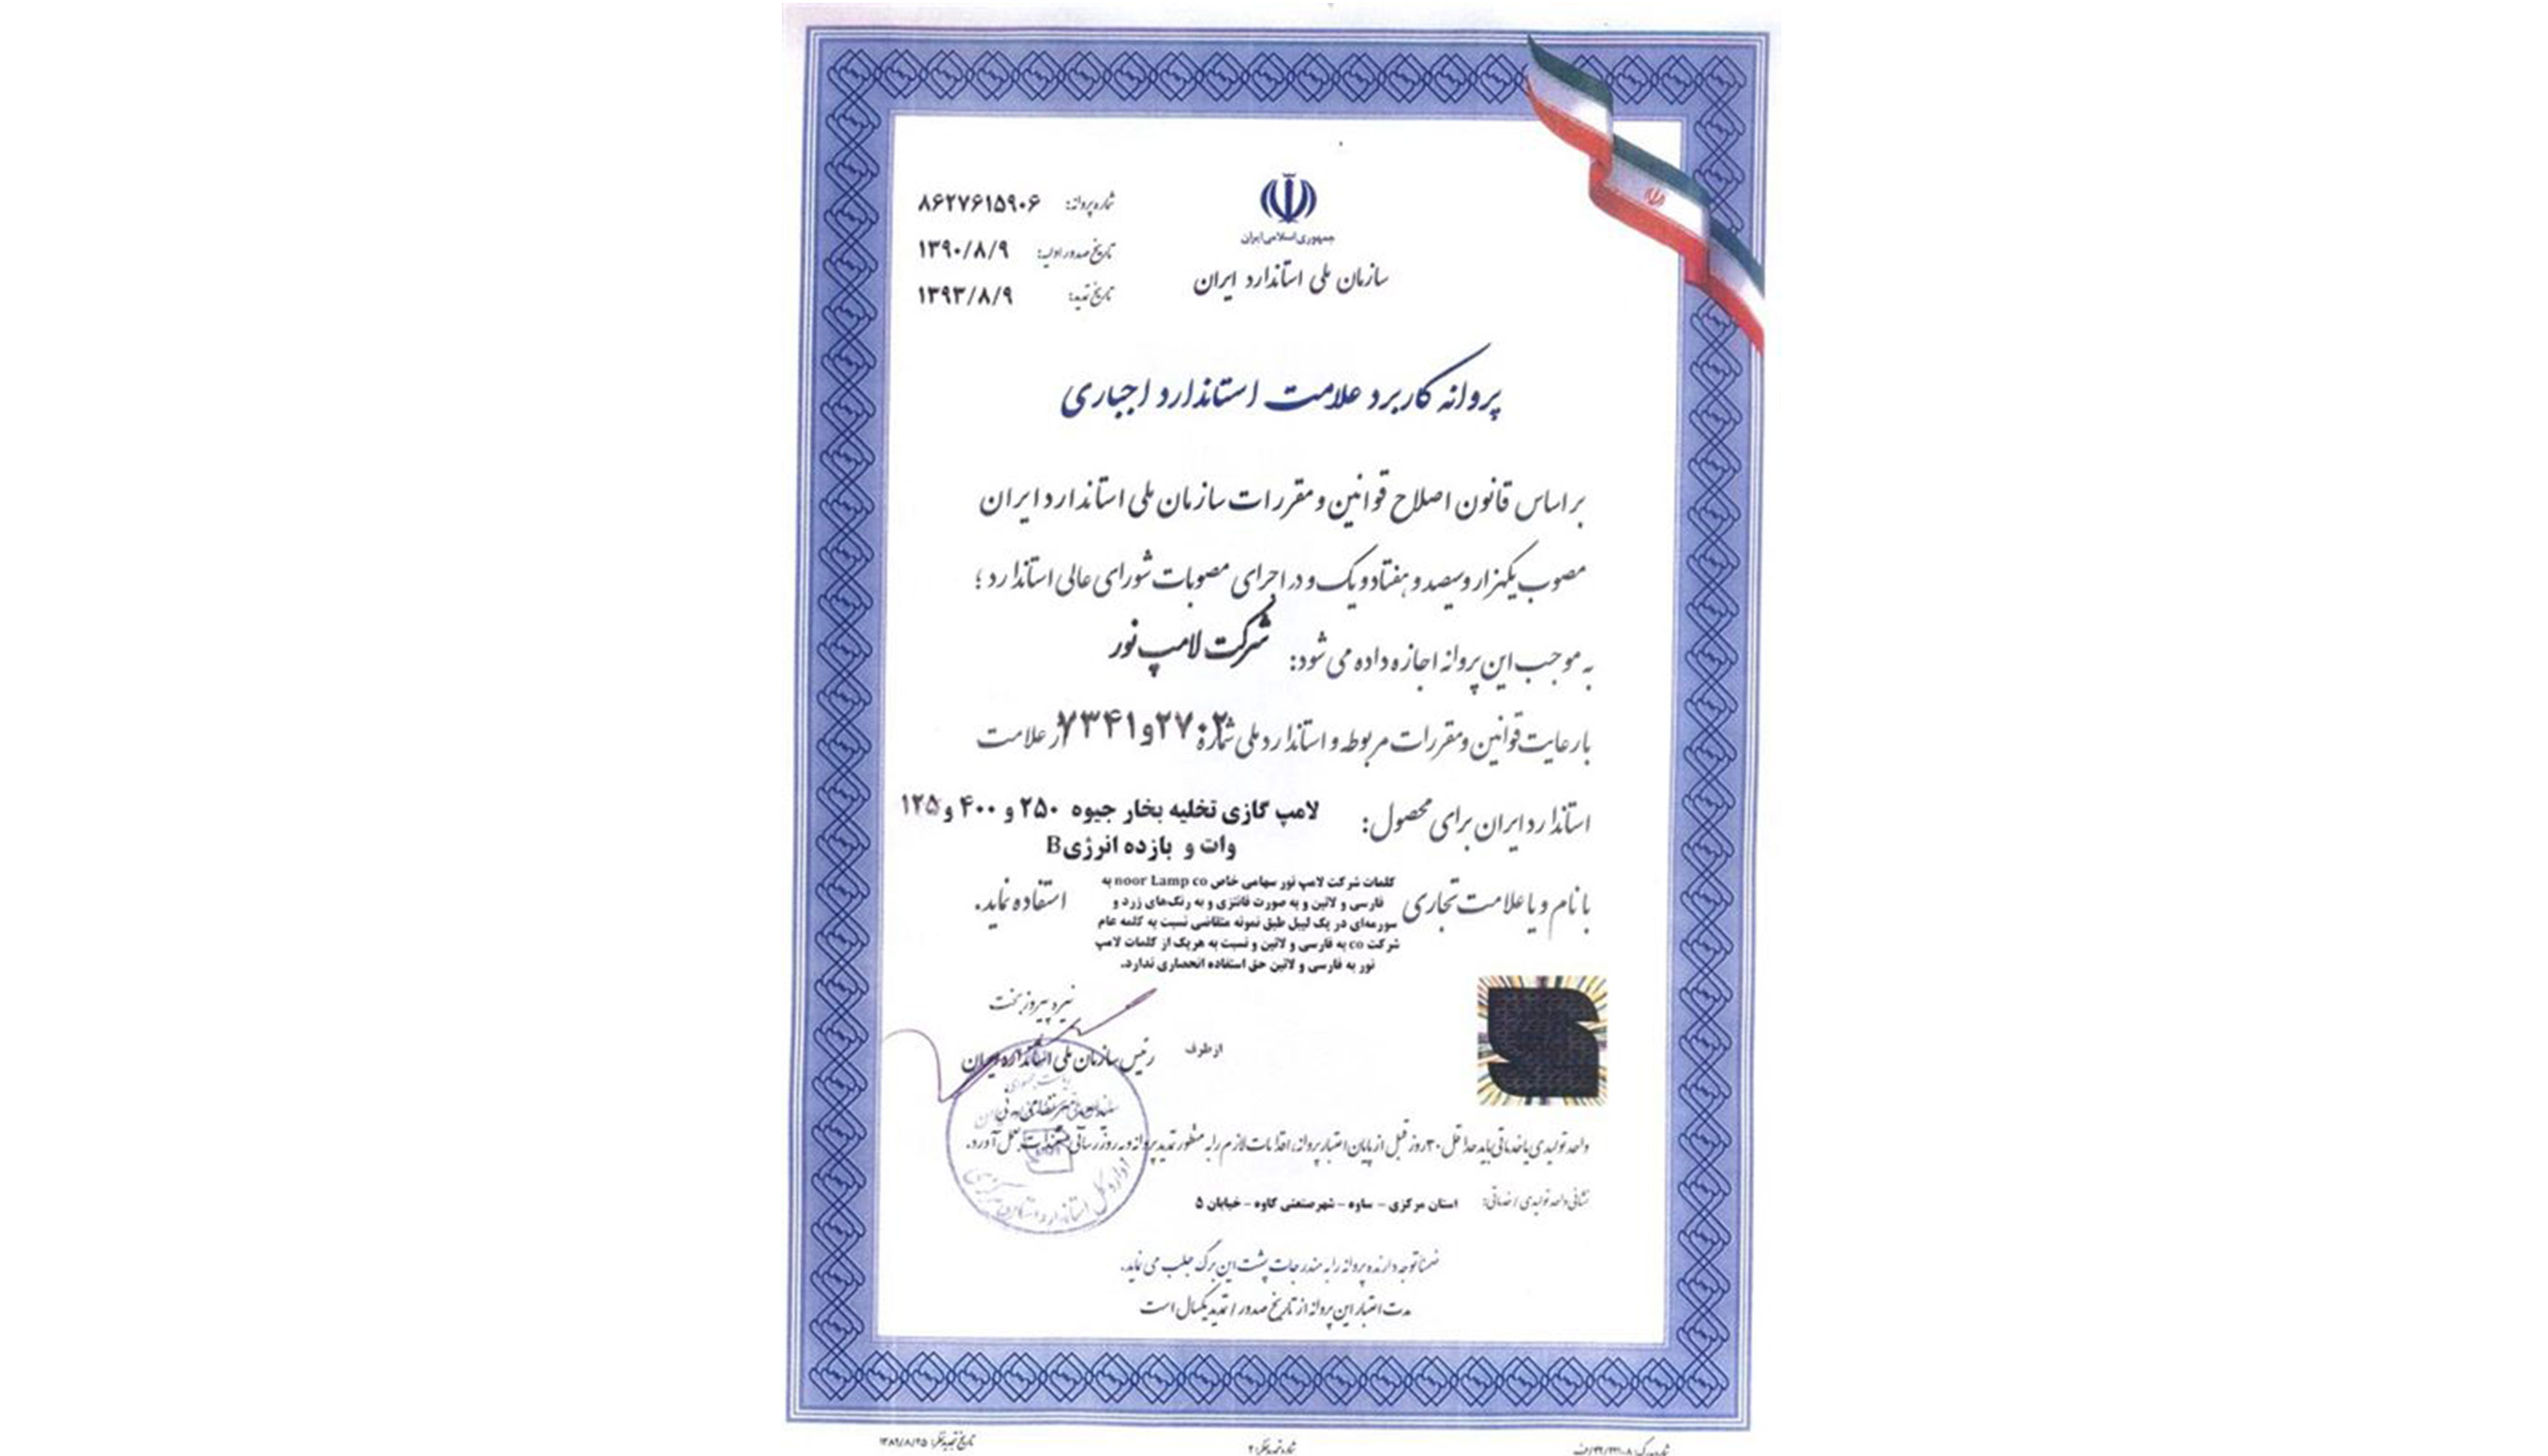 جمهوری اسلامی ایران
سازمان ملی استاندارد ایران
شماره پروانه: ۸۶۲۷۶۱۵۹۰۶
تاریخ صدور اولیه: ۱۳۹۰/۸/۹
تاریخ تمدید: ۱۳۹۳/۸/۹
پروانه کاربرد علامت استاندارد اجباری
براساس قانون اصلاح قوانین و مقررات سازمان ملی استاندارد ایران
مصوب یکهزار و سیصد و هفتاد و یک و در اجرای مصوبات شورای عالی استاندارد ؛
به موجب این پروانه اجازه داده می شود: شرکت لامپ نور
با رعایت قوانین و مقررات مربوطه و استاندارد ملی شماره ۲۷۰۲و۷۳۴۱ از علامت
استاندارد ایران برای محصول: لامپ گازی تخلیه بخار جیوه ۲۵۰ و ۴۰۰ و ۱۲۵
وات و بازده انرژی B
با نام و یا علامت تجاری
کلمات شرکت لامپ نور سهامی خاص noor Lamp co به
فارسی و لاتین و به صورت فانتزی و به رنگ‌های زرد و
سورمه‌ای در یک لیبل طبق نمونه متقاضی نسبت به کلمه عام
شرکت co به فارسی و لاتین و نسبت به هریک از کلمات لامپ
نور به فارسی و لاتین حق استفاده انحصاری ندارد.
استفاده نماید.
نیره پیروزبخت
از طرف رئیس سازمان ملی استاندارد ایران
واحد تولیدی یا خدماتی باید حداقل ۳۰ روز قبل از پایان اعتبار پروانه، اقدامات لازم را به منظور تمدید پروانه و به روز رسانی مستندات بعمل آورد.
نشانی واحد تولیدی / خدماتی: استان مرکزی - ساوه - شهرصنعتی کاوه - خیابان ۵
ضمنا توجه دارنده پروانه را به مندرجات پشت این برگ جلب می نماید.
مدت اعتبار این پروانه از تاریخ صدور / تمدید یکسال است
تاریخ تجدیدنظر: ۱۳۸۹/۸/۲۵